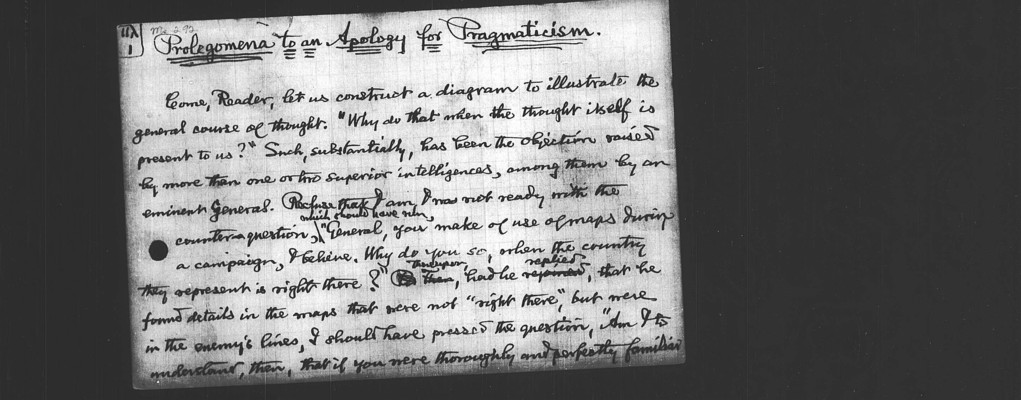 IIX
1
Ms 292
Prolegomena to an Apology for Pragmaticism.
Come, Reader, let us construct a diagram to illustrate the
general course of thought. "Why do that when the thought itself is
present to us?" Such, substantially, has been the objection raised
by more than one or two superior intelligences, among them by an
eminent General. Recluse that I am, I was not ready with the
which should have run,
counter-question, "General, you make of use of maps during
a campaign, I believe. Why do you so, when the country
they represent is right there?" Thereupon, Then, had he replied rejoined, that he
found details in the maps that were not "right there", but were
in the enemy's lines, I should have pressed the question, "Am I to
understand, then, that if you were thoroughly and perfectly familiar